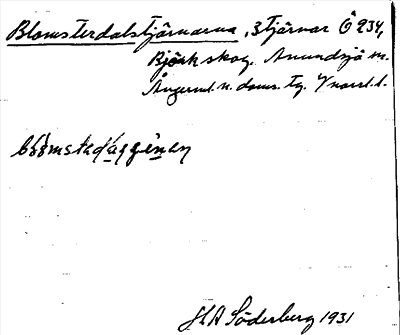 Blomsterdalstjärnarna, 3 tjärnar Ö 234,
Björkskog. Anundsjö sn.
Ångerml. n. doms. tg. V norrl. l.
HA Söderberg 1931